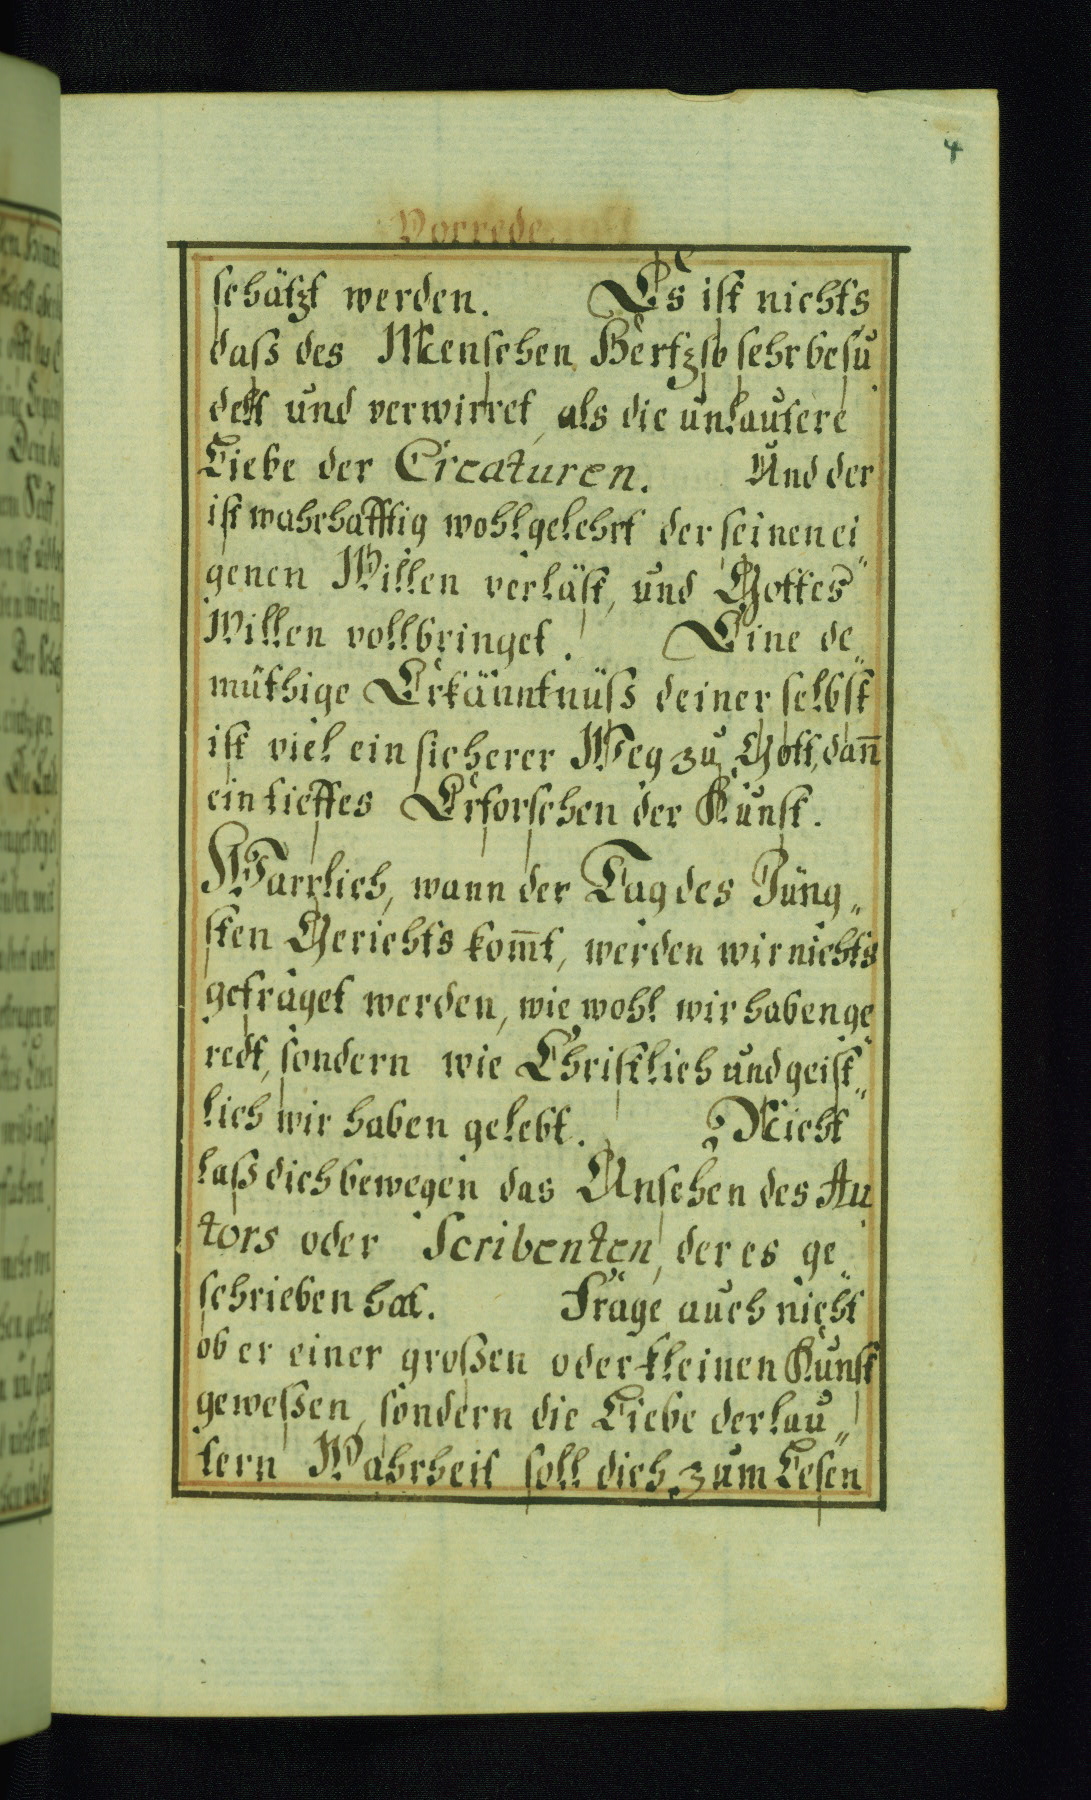 4
Vorrede.
schätzt werden. Es ist nichts
dass des Menschen Hertz so sehr besu„
delt und verwirret, als die unlautere
Liebe der Creaturen. Und der
ist wahrhafftig wohlgelehrt der seinen ei„
genen Willen verläst, und Gottes
Willen vollbringet. Eine de„
müthige Erkänntnüss deiner selbst
ist viel ein sicherer Weg zu Gott, dan̄
ein tieffes Erforschen der Kunst.
Warrlich, wann der Tag des Jüng„
sten Gerichts kom̄t, werden wir nichts
gefraget werden, wie wohl wir haben ge„
redt, sondern wie Christlich und geist„
lich wir haben gelebt. Nicht
lass dich bewegen das Ansehen des Au„
tors oder Scribenten, der es ge„
schrieben hat. Frage auch nicht
ob er einer grossen oder kleinen Kunst
gewessen, sondern die Liebe der lau„
tern Wahrheit soll dich zum Lesen